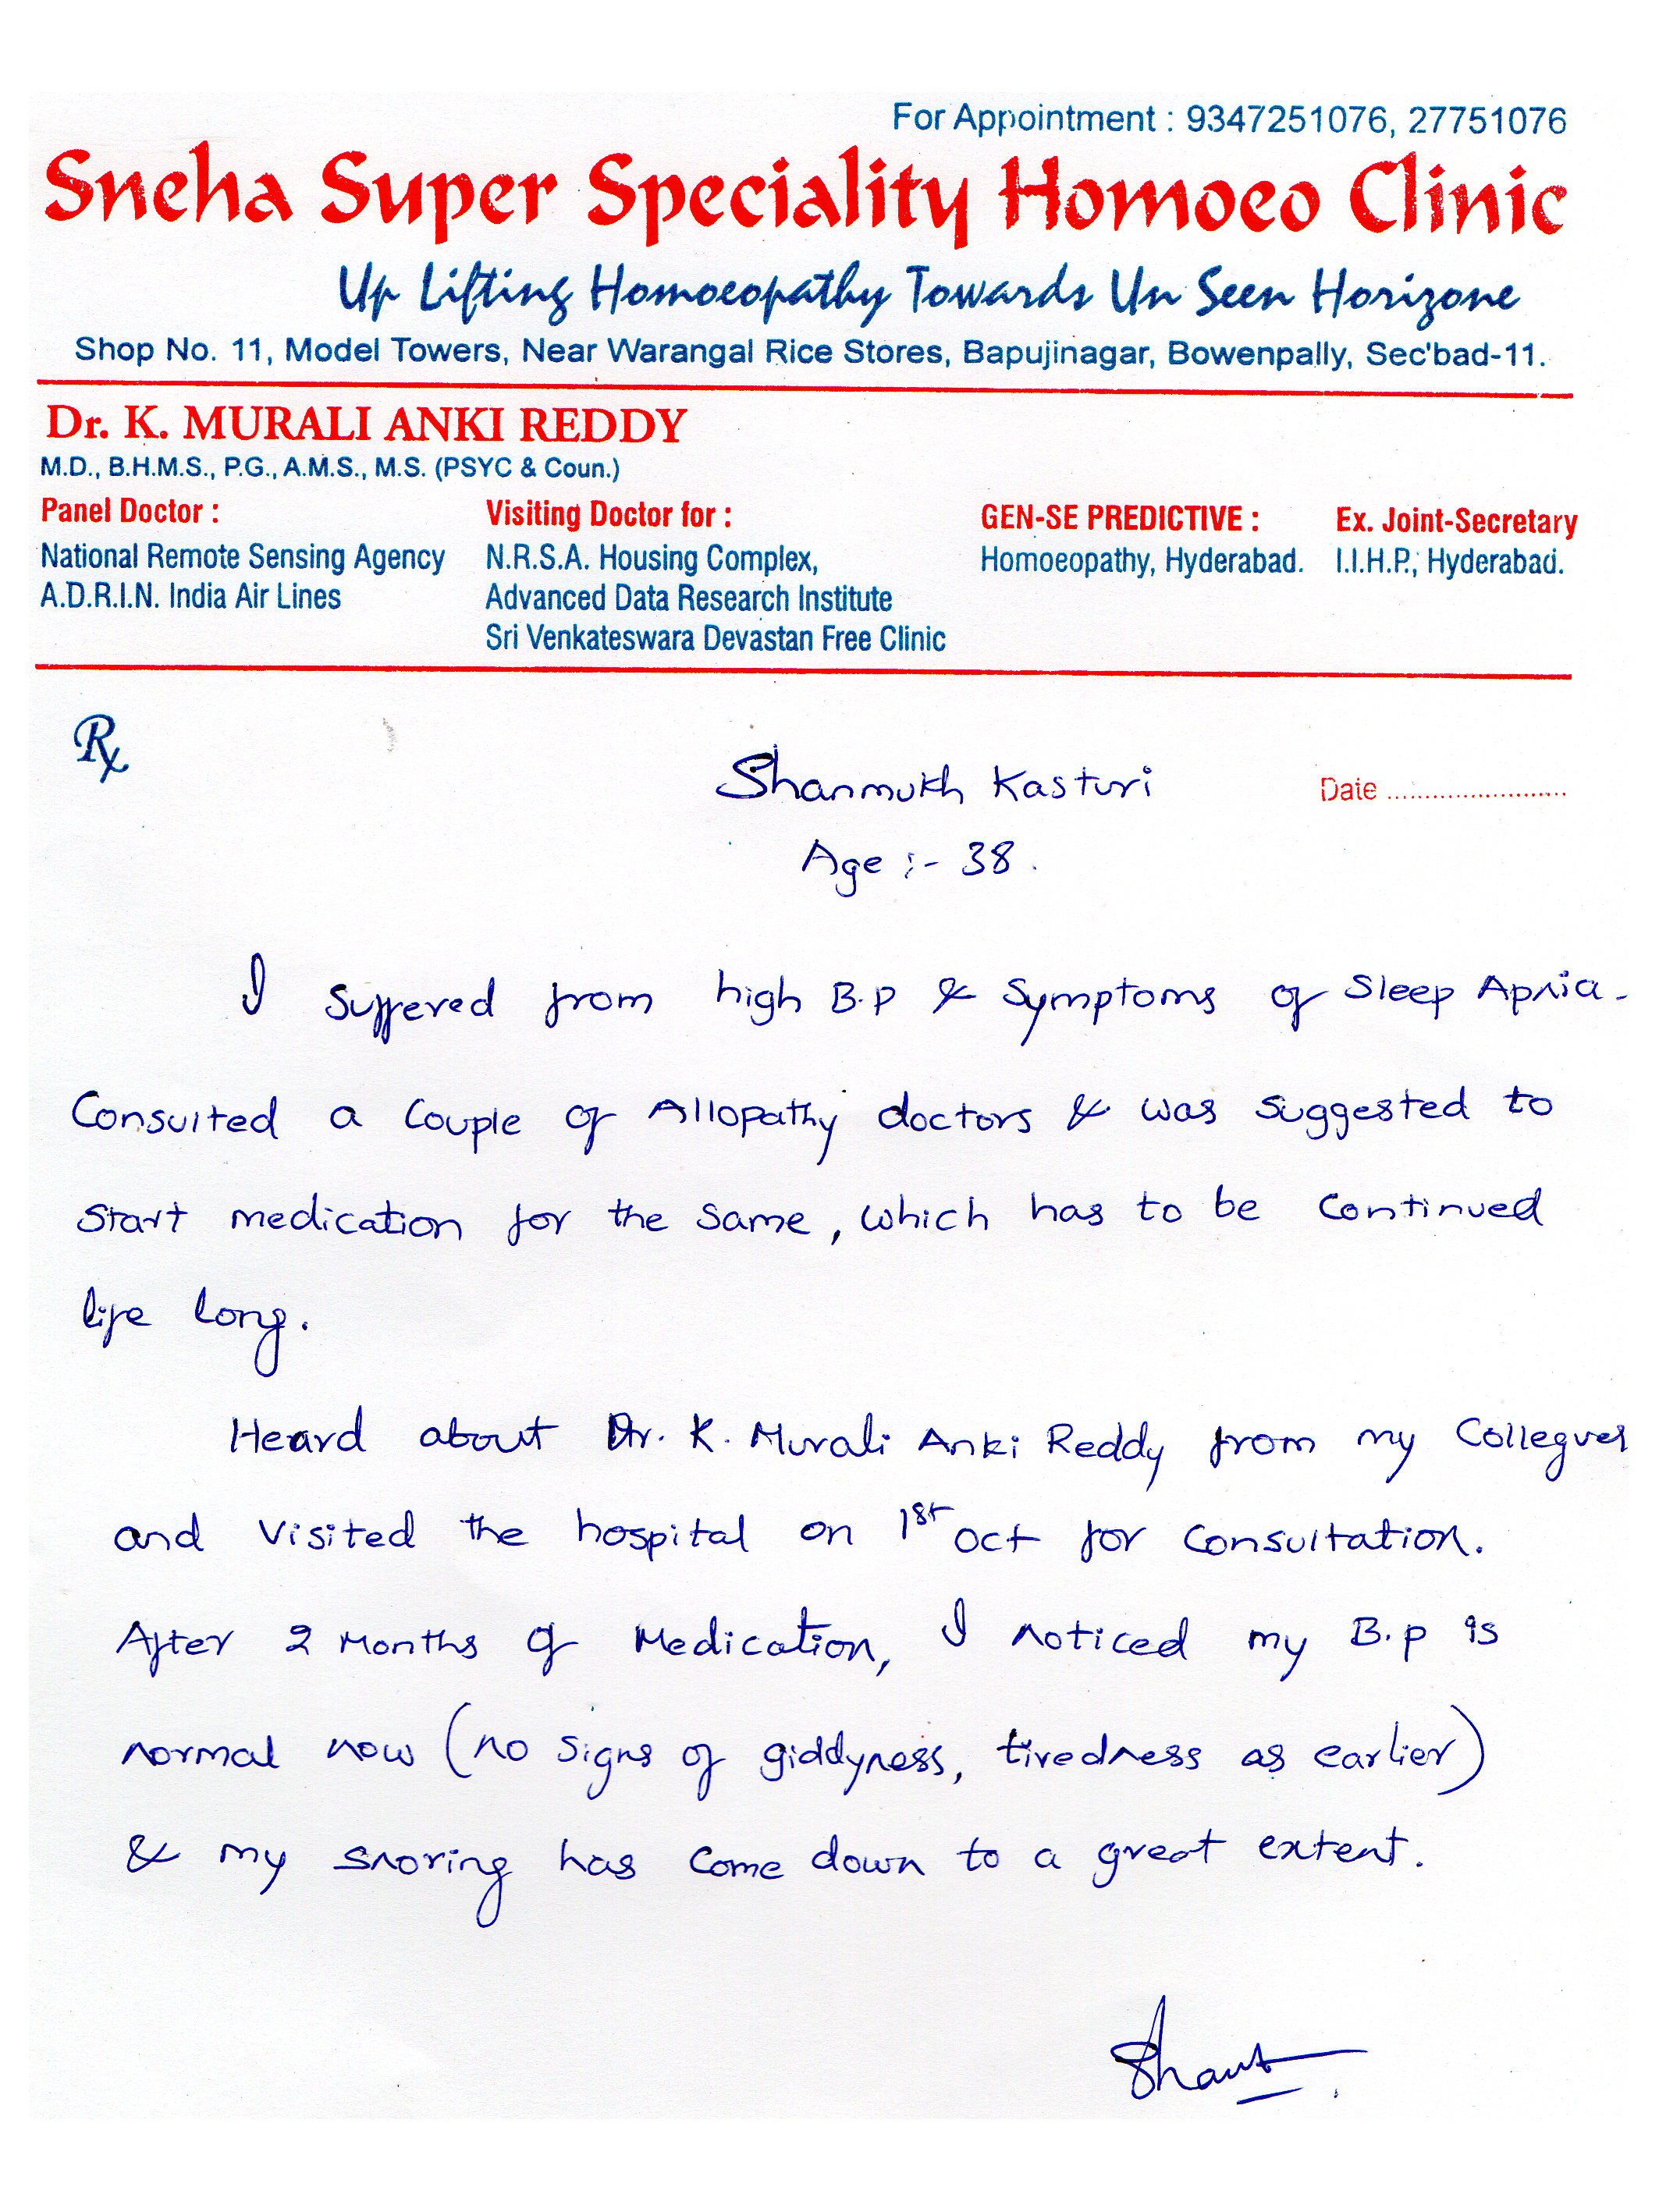 For Appointment : 9347251076, 27751076
Sneha Super Speciality Homoeo Clinic
Up Lifting Homoeopathy Towards Un Seen Horizone
Shop No. 11, Model Towers, Near Warangal Rice Stores, Bapujinagar, Bowenpally, Sec'bad-11.
Dr. K. MURALI ANKI REDDY
M.D., B.H.M.S., P.G., A.M.S., M.S. (PSYC & Coun.)
Panel Doctor :
National Remote Sensing Agency
A.D.R.I.N. India Air Lines
Visiting Doctor for :
N.R.S.A. Housing Complex,
Advanced Data Research Institute
Sri Venkateswara Devastan Free Clinic
GEN-SE PREDICTIVE :
Homoeopathy, Hyderabad.
Ex. Joint-Secretary
I.I.H.P., Hyderabad.
Rx
Shanmukh Kasturi
Date ........................
Age :- 38.
I suffered from high B.P & Symptoms of Sleep Apnia.
Consulted a Couple of Allopathy doctors & was suggested to
start medication for the same, which has to be continued
life long.
Heard about Dr. K. Murali Anki Reddy from my Collegues
and visited the hospital on 1st Oct for consultation.
After 2 Months of Medication, I noticed my B.P is
normal now (no signs of giddyness, tiredness as earlier)
& my snoring has come down to a great extent.